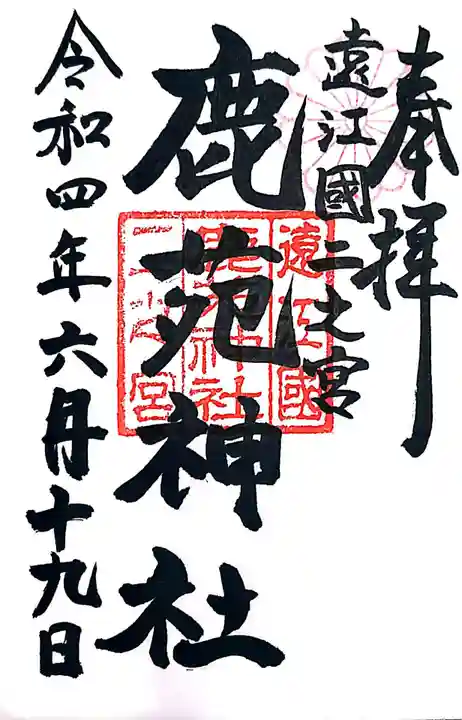 奉拝
遠江國二之宮
鹿苑神社
令和四年六月十九日
遠江國
鹿苑神社
二之宮